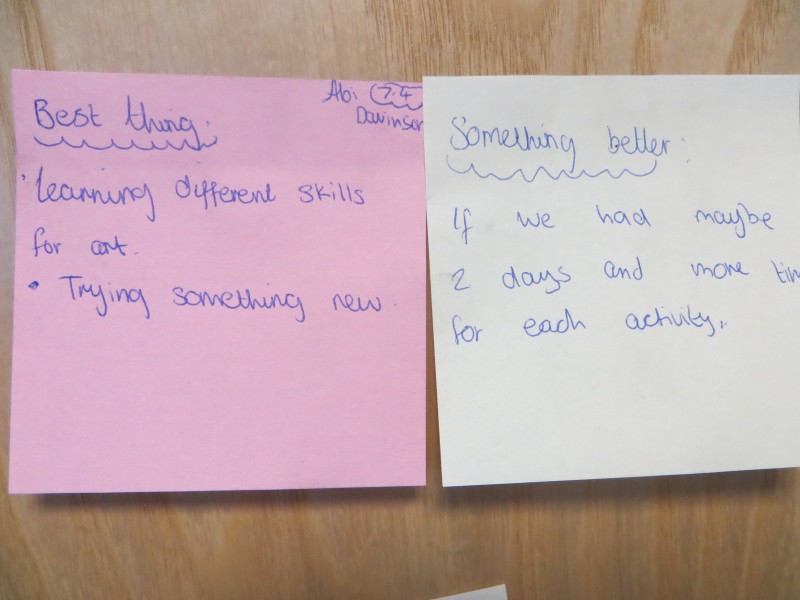 Abi 7.4
Davinson
Best thing:
• Learning different skills
for art.
• Trying something new.
Something better:
If we had maybe
2 days and more tim
for each activity.